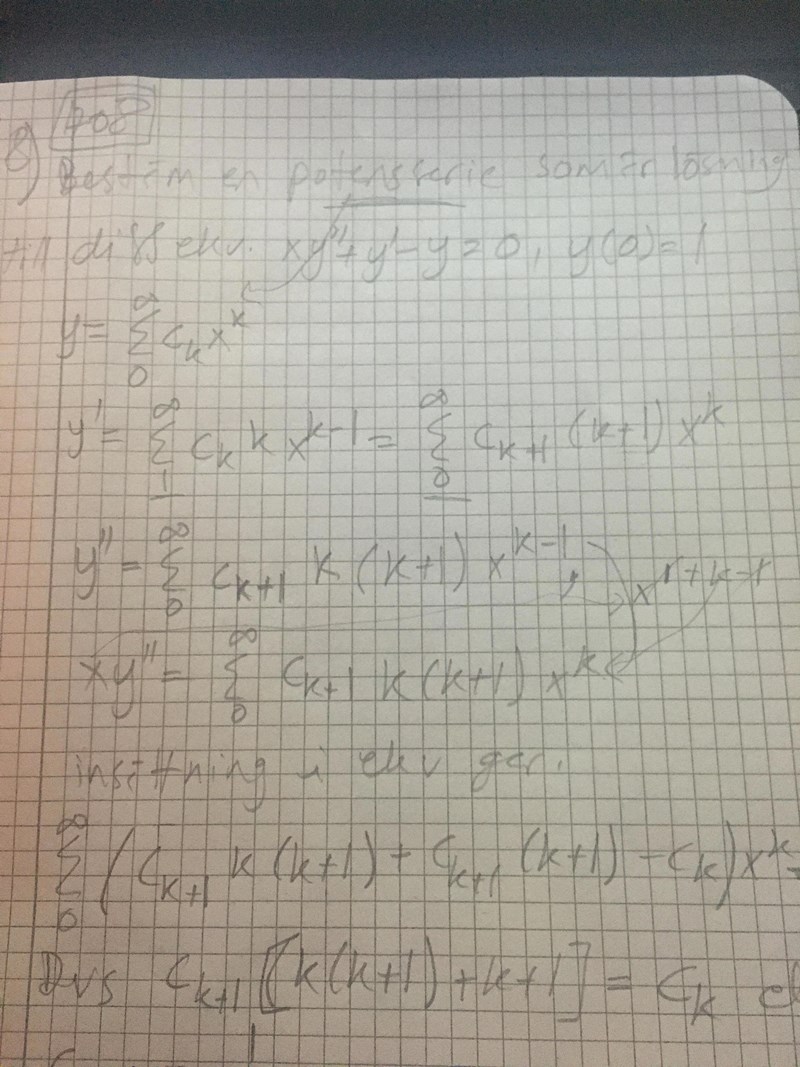 408
8) Bestäm en potensserie som är lösning
till diff ekv. xy''+y'-y=0, y(0)=1
y= ∞ Σ 0 c_k x^k
y'= ∞ Σ 1 c_k k x^{k-1} = ∞ Σ 0 c_{k+1} (k+1) x^k
y''= ∞ Σ 0 c_{k+1} k (k+1) x^{k-1}, x^{1+k-1}
xy''= ∞ Σ 0 c_{k+1} k(k+1) x^k
insättning i ekv ger.
∞ Σ 0 (c_{k+1} k(k+1) + c_{k+1} (k+1) - c_k) x^k =
Dvs c_{k+1} [k(k+1)+k+1] = c_k